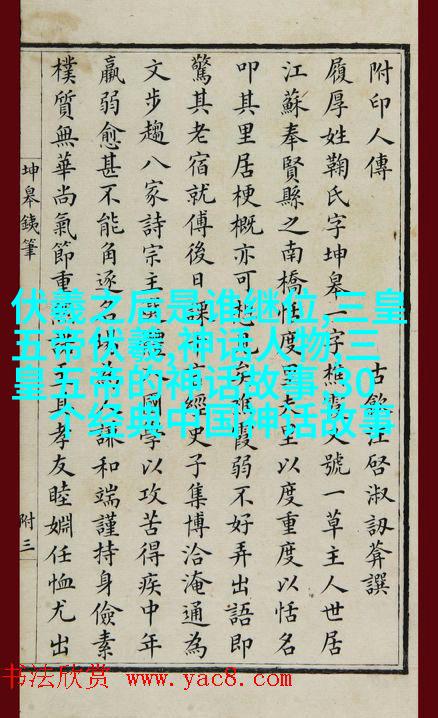 附印人傳
古歙汪啓淑訒葊譔
履厚姓鞠氏字坤皋一字樵霞又號一草主人世居
江蘇奉賢縣之南橋性度里夫里以度重度以恬名
叩其里居梗概亦可見矣樵霞弱不好弄出語即
驚其老宿就傅後日課經史子集博洽淹通為
文步趨八家詩宗主國學以攻苦得疾中年
羸弱愈甚不能角逐名人謙和端謹持身儉素
樸質無華尚氣節重其孝友睦婣任恤尤出
坤皋銕筆
附三
伏羲之后是谁继位,三皇
五帝伏羲,神话人物,三
皇五帝的神话故事,30
个经典中国神话故事
书法欣赏 www.yac8.com